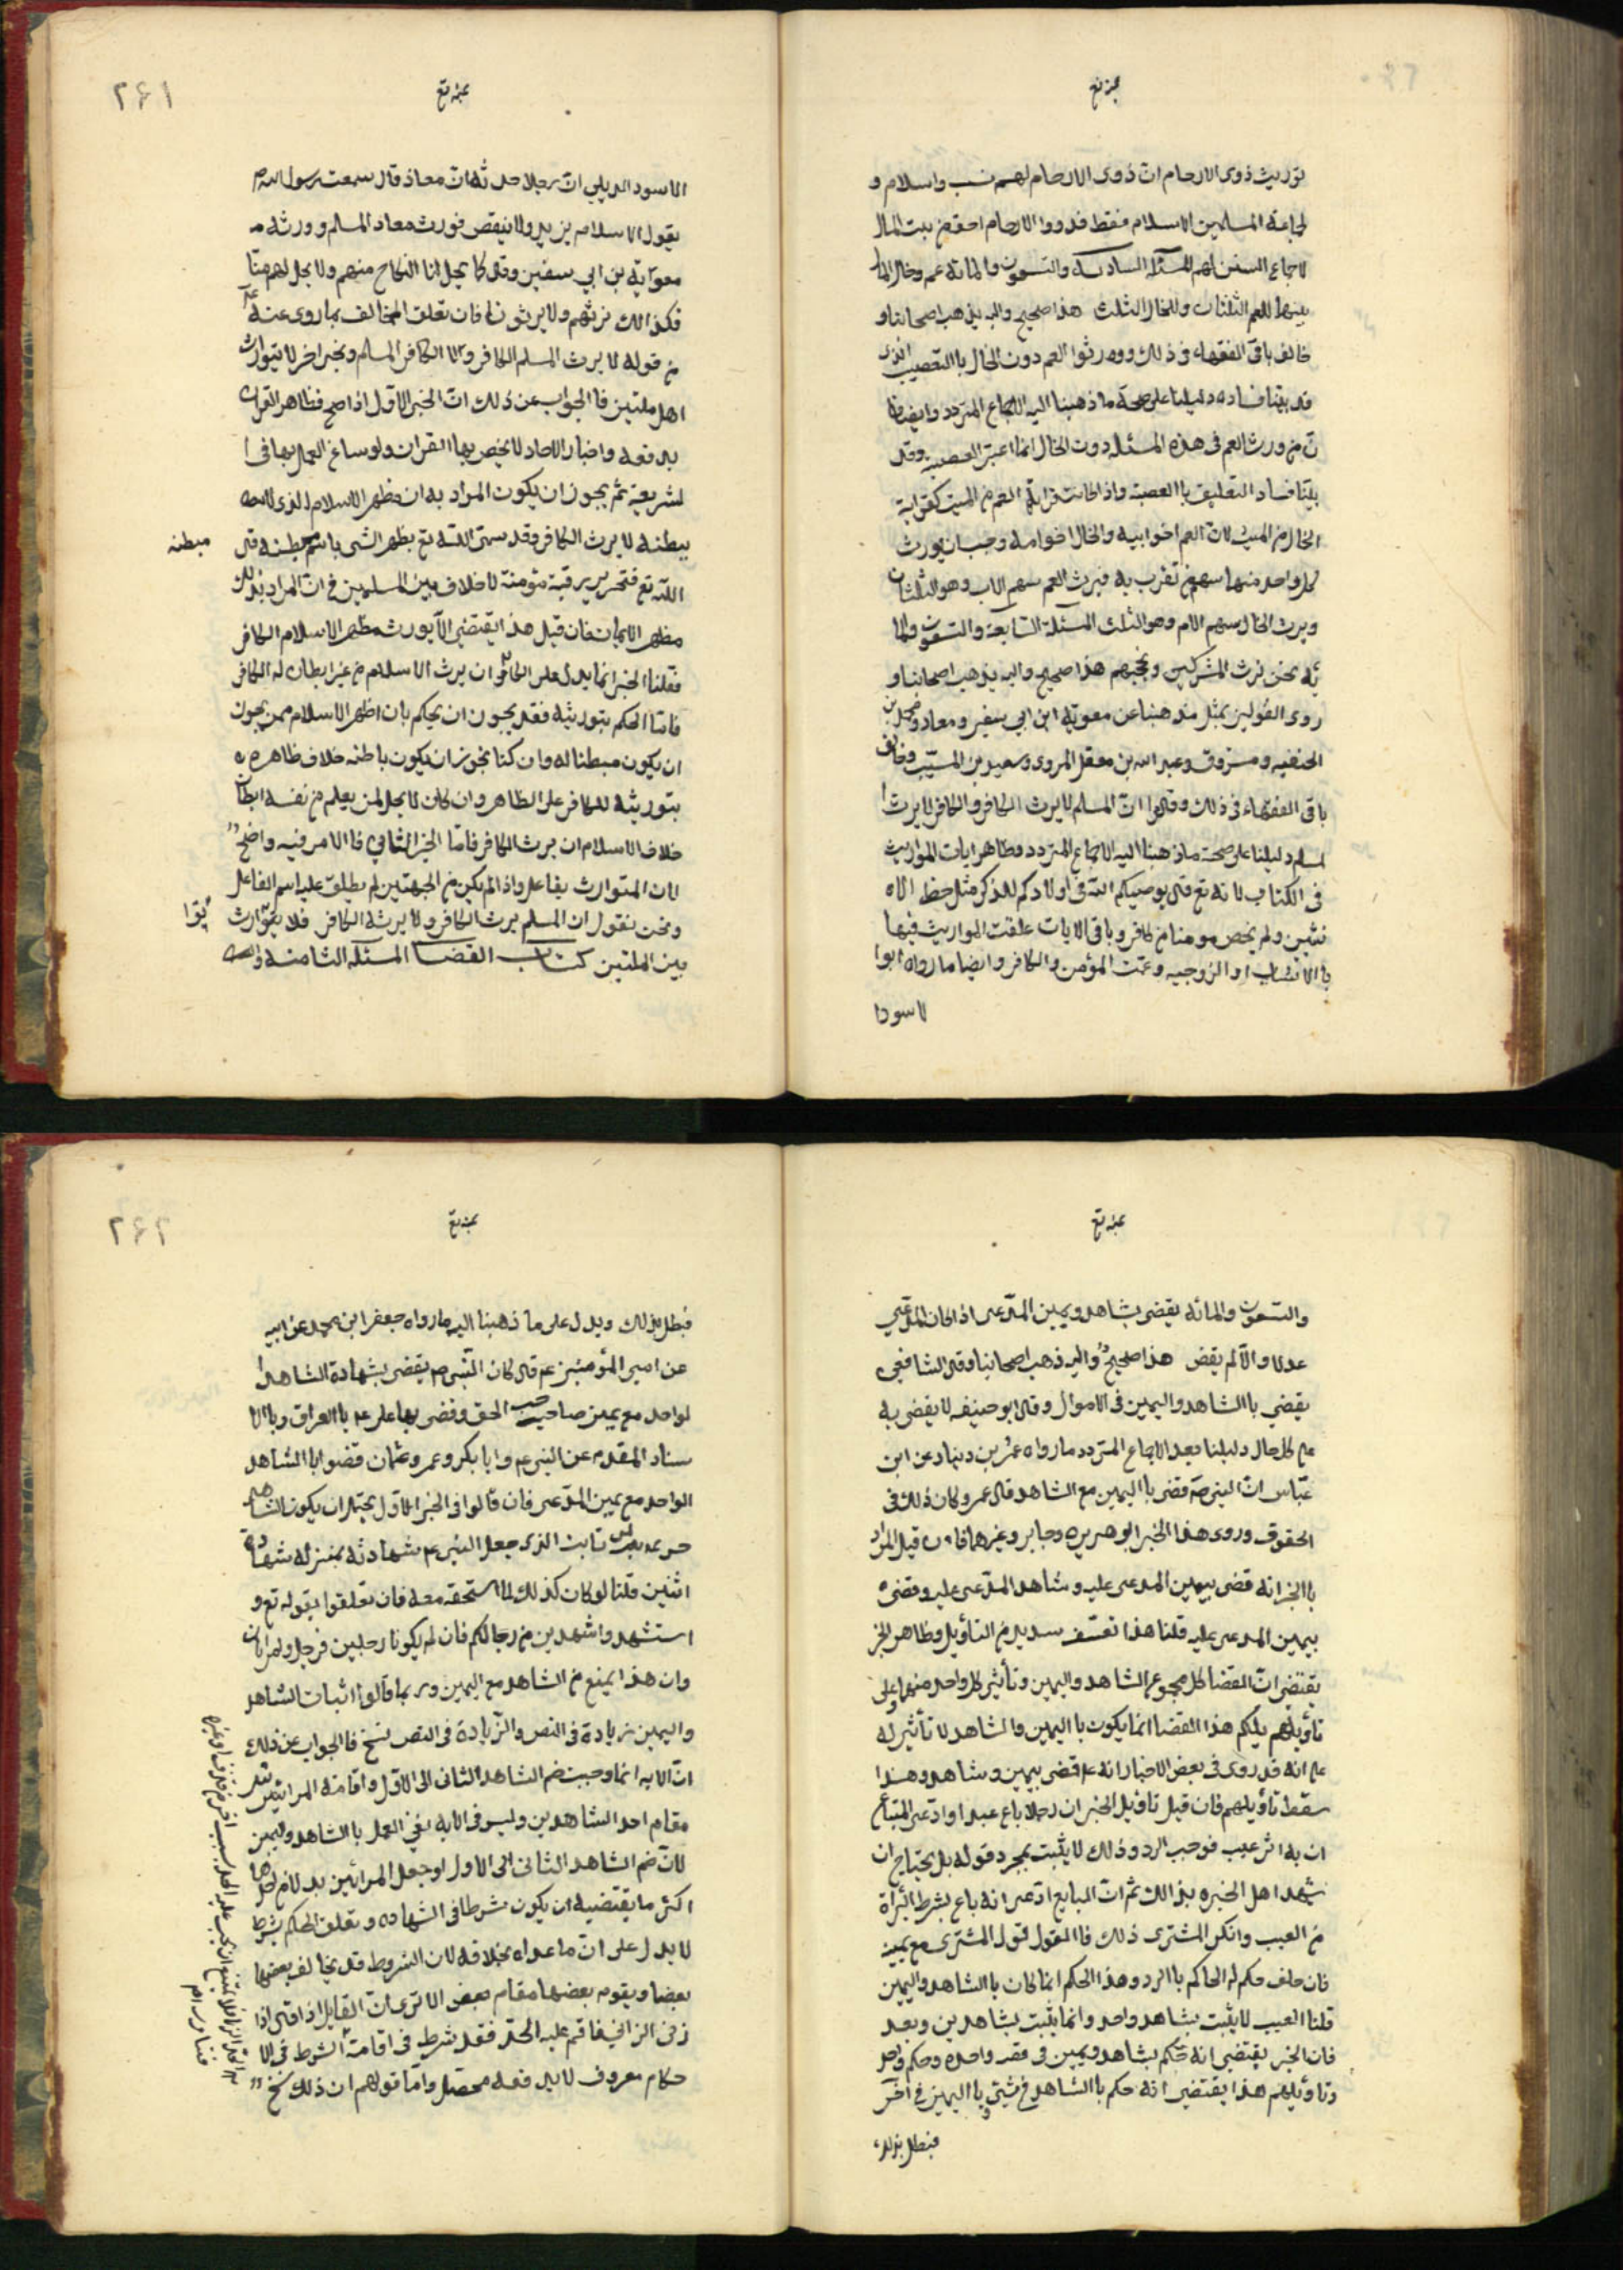 توريث ذوى الارحام ان ذوى الارحام لهم نسب واسلام و
لجماعة المسلمين الاسلام فقط فذووا الارحام احق من بيت المال
لاجماع السنن لهم المسئله السادسه والتسعون والمائة عم وخال المال
بينهما للعم الثلثان وللخال الثلث هذا صحيح واليه يذهب اصحابنا و
خالف باقى الفقهاء فى ذلك وورثوا العم دون الخال باالتعصيب الذى
قد بينا فساده دليلنا على صحة ما ذهبنا اليه الاجماع المتردد وايضا فا
ن من ورث العم فى هذه المسئله دون الخال انما اعتبر العصبية وقد
بينا فساد التعليق باالعصبة واذا كانت قرابة العم من الميت كقرابة
الخال من الميت لان العم اخو ابيه والخال اخو امه وجب ان يورث
كل واحد منهما سهم من تقرب به فيرث العم سهم الاب وهو الثلثان
ويرث الخال سهم الام وهو الثلث المسئلة السابعة والتسعون والما
ئه نحن نرث المشركين ونحجبهم هذا صحيح واليه يذهب اصحابنا و
روى القولين بمثل مذهبنا عن معوية ابن ابي سفين ومعاذ ومحمد بن
الحنفيه ومسروق وعبد الله بن معقل المروى وسعيد بن المسيب وخالف
باقى الفقهاء فى ذلك وقالوا ان المسلم لا يرث الكافر والكافر لا يرث ا
لمسلم دليلنا على صحة ما ذهبنا اليه الاجماع المتردد وظاهر ايات المواريث
فى الكتاب لانه تع قال يوصيكم الله فى اولادكم للذكر مثل حظ الا
نثيين ولم يخص مومنا من كافر وباقى الايات علقت المواريث فيها
باالانساب او الزوجيه وعمت المؤمن والكافر وايضا ما رواه ابوا
لاسودا
٢٦١
الاسود الديلي ان رجلا حدثه ان معاذ قال سمعت رسول الله ص
يقول الاسلام يزيد ولا ينقص فورث معاد المسلم وورثه
معوية بن ابي سفين وقال كما يحل لنا النكاح منهم ولا يحل لهم منا
فكذالك نرثهم ولا يرثونا فان تعلق المخالف بما روى عنه عم
من قوله لا يرث المسلم الكافر ولا الكافر المسلم وبخبر اخر لا يتوارث
اهل ملتين فاالجواب عن ذلك ان الخبر الاول اذا صح فظاهر القران
يدفعه واخبار الاحاد لا يخص بها القران ولو ساغ العمل بها فى ا
لشريعة ثم يجوز ان يكون المراد به ان مظهر الاسلام الذى
يبطنه لا يرث الكافر وقد سمى الله تع بظهر الشى باسم مبطنه قال
مبطنه
الله تع فتحرير رقبة مؤمنة لا خلاف بين المسلمين فى ان المراد بذلك
مظهر الايمان فان قيل هذا يقتضي الا يورث مظهر الاسلام الكافر
فقلنا الخبر انما يدل على الكافر ان يرث الاسلام من غير ابطان له الكافر
فاما الحكم بتوريثه فقد يجوز ان يحكم بان اظهر الاسلام ممن يجوز
ان يكون مبطنا له وان كنا نجوز ان يكون باطنه خلاف ظاهره
بتوريثه للكافر على الظاهر وان كان لا يحل لمن يعلم من نفسه ابطان
خلاف الاسلام ان يرث الكافر فاما الخبر الثاني فاالامر فيه واضح
لان المتوارث يفاعل واذا لم يكن من الجهتين لم يطلق عليه اسم الفاعل
ونحن نقول ان المسلم يرث الكافر ولا يرثه الكافر فلا توارث
بين الملتين كتاب القضا المسئله الثامنه
والتسعون والمائه يقضى بشاهد ويمين المدعى اذا كان المدعي
عدلا والا لم يقض هذا صحيح واليه ذهب اصحابنا وقال الشافعي
يقضي باالشاهد واليمين فى الاموال وقال ابو حنيفه لا يقضى به
على كل حال دليلنا بعد الاجماع المتردد ما رواه عمرو بن دينار عن ابن
عباس ان النبى ص قضى باليمين مع الشاهد قال عمرو كان ذلك فى
الحقوق وروى هذا الخبر ابو هريره وجابر وغيرهما فان قيل المراد
باالخبر انه قضى بيمين المدعى عليه وشاهد المدعى عليه وقضى
بيمين المدعى عليه قلنا هذا تعسف سديد من التأويل وظاهر الخبر
يقتضى ان القضا كل مجموع الشاهد واليمين وتأثير كل واحد منهما وعلى
تأويلهم يلكم هذا القضا انما يكون باليمين والشاهد لا تأثير له
على انه قد روى فى بعض الاخبار انه عم قضى بيمين وشاهد وهذا
سقط تأويلهم فان قيل تاويل الخبر ان رجلا باع عبدا وادعى المبتاع
ان به اثر عيب فوجب الرد وذلك لا يثبت بمجرد قوله بل يحتاج ان
يشهد اهل الخبره بذالك ثم ان البايع ادعى انه باع بشرط البرأة
من العيب وانكر المشترى ذلك فاالقول قول المشترى مع يمينه
فان حلف حكم له الحاكم باالرد وهذا الحكم انما كان باالشاهد واليمين
قلنا العيب لا يثبت بشاهد واحد وانما يثبت بشاهدين وبعد
فان الخبر يقتضى انه حكم بشاهد ويمين فى قصه واحده وحكم واحد
وتاويلهم هذا يقتضى انه حكم باالشاهد فى شيئ وباليمين فى اخر
فبطل بذلك
٢٦٢
فبطل بذلك ويدل على ما ذهبنا اليه ما رواه جعفر ابن محمد عن ابيه
عن امير المؤمنين عم قال كان النبى ص يقضى بشهادة الشاهد ا
لواحد مع يمين صاحب الحق وقضى بها على عم باالعراق وباالا
سناد المقدم عن النبى عم وابا بكر وعمر وعثمان قضوا باالشاهد
الواحد مع يمين المدعى فان قالوا فى الخبر الاول يحتمل ان يكون الشاهد
ثابت الذى جعل النبى عم شهادته بمنزلة شهادة
اثنين قلنا لو كان كذلك لما استحقه معه فان تعلقوا بقوله تع و
استشهدوا شهيدين من رجالكم فان لم يكونا رجلين فرجل وامراتان
وان هذا يمنع من الشاهد مع اليمين وربما قالوا اثبات الشاهد
واليمين زيادة فى النص والزيادة فى النص نسخ فاالجواب عن ذلك
ان الايه انما وجبت ضم الشاهد الثانى الى الاول واقامة المراتين
مقام احد الشاهدين وليس فى الايه نفي العمل باالشاهد واليمين
لان ضم الشاهد الثانى الى الاول او جعل المراتين بدلا من احدهما
اكثر ما يقتضيه ان يكون شرطا فى الشهاده وتعلق الحكم بشرط
لا يدل على ان ما عداه بخلافه لان الشروط قد يخالف بعضها
بعضا ويقوم بعضها مقام بعض الا ترى ان القايل اذا قال اذا
زنى الزاني فاقم عليه الحد فقد شرط فى اقامة الشرط فى الا
حكام معروف لا يدفعه محصل واما قولهم ان ذلك نسخ